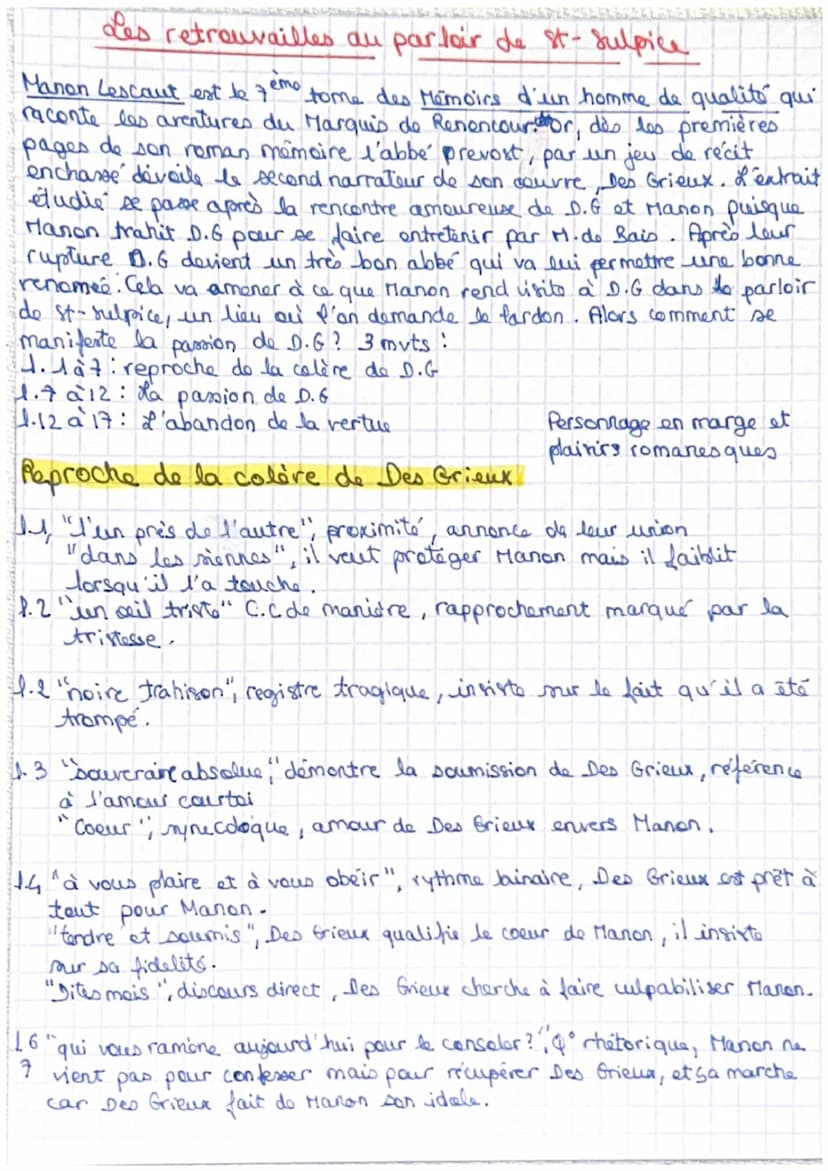 Les retrouvailles au parloir de St-Sulpice
Manon Lescaut est le 7ème tome des Mémoirs d'un homme de qualité qui
raconte les aventures du Marquis de Renoncour. Or, dès les premières
pages de son roman mémoire l'abbé prevost, par un jeu de récit
enchassé dévoile le second narrateur de son oeuvre, Des Grieux. L'extrait
étudié se passe après la rencontre amoureuse de D.G et Manon puisque
Manon trahit D.G pour se faire entretenir par M. de Bais. Après leur
rupture D.G devient un très bon abbé qui va lui permettre une bonne
renomeé. Cela va amener à ce que Manon rend visite à D.G dans le parloir
de St-sulpice, un lieu où l'on demande le pardon. Alors comment se
manifeste la passion de D.G? 3 mvts :
l.1à7 : reproche de la colère de D.G
l.7 à 12 : La passion de D.G
l.12 à 17 : L'abandon de la vertue
Personnage en marge et
plaisirs romanesques
Reproche de la colère de Des Grieux
l.1, "l'un près de l'autre", proximité, annonce de leur union
"dans les siennes", il veut protéger Manon mais il faiblit
lorsqu'il l'a touche.
l.2 "un oeil triste" C.C de manière, rapprochement marqué par la
tristesse.
l.2 "noire trahison", registre tragique, insiste sur le fait qu'il a été
trompé.
l.3 "souveraine absolue", démontre la soumission de Des Grieux, référence
à l'amour courtoi
"Coeur", synecdoque, amour de Des Grieux envers Manon.
l.4 "à vous plaire et à vous obéir", rythme binaire, Des Grieux est prêt à
tout pour Manon.
"tendre et soumis", Des Grieux qualifie le coeur de Manon, il insiste
sur sa fidelités.
"Dites mois", discours direct, Des Grieux cherche à faire culpabiliser Manon.
l.6 "qui vous ramène aujourd'hui pour le consoler?", Q° rhétorique, Manon ne
7 vient pas pour confesser mais pour récupérer Des Grieux, et ça marche
car Des Grieux fait de Manon son idole.